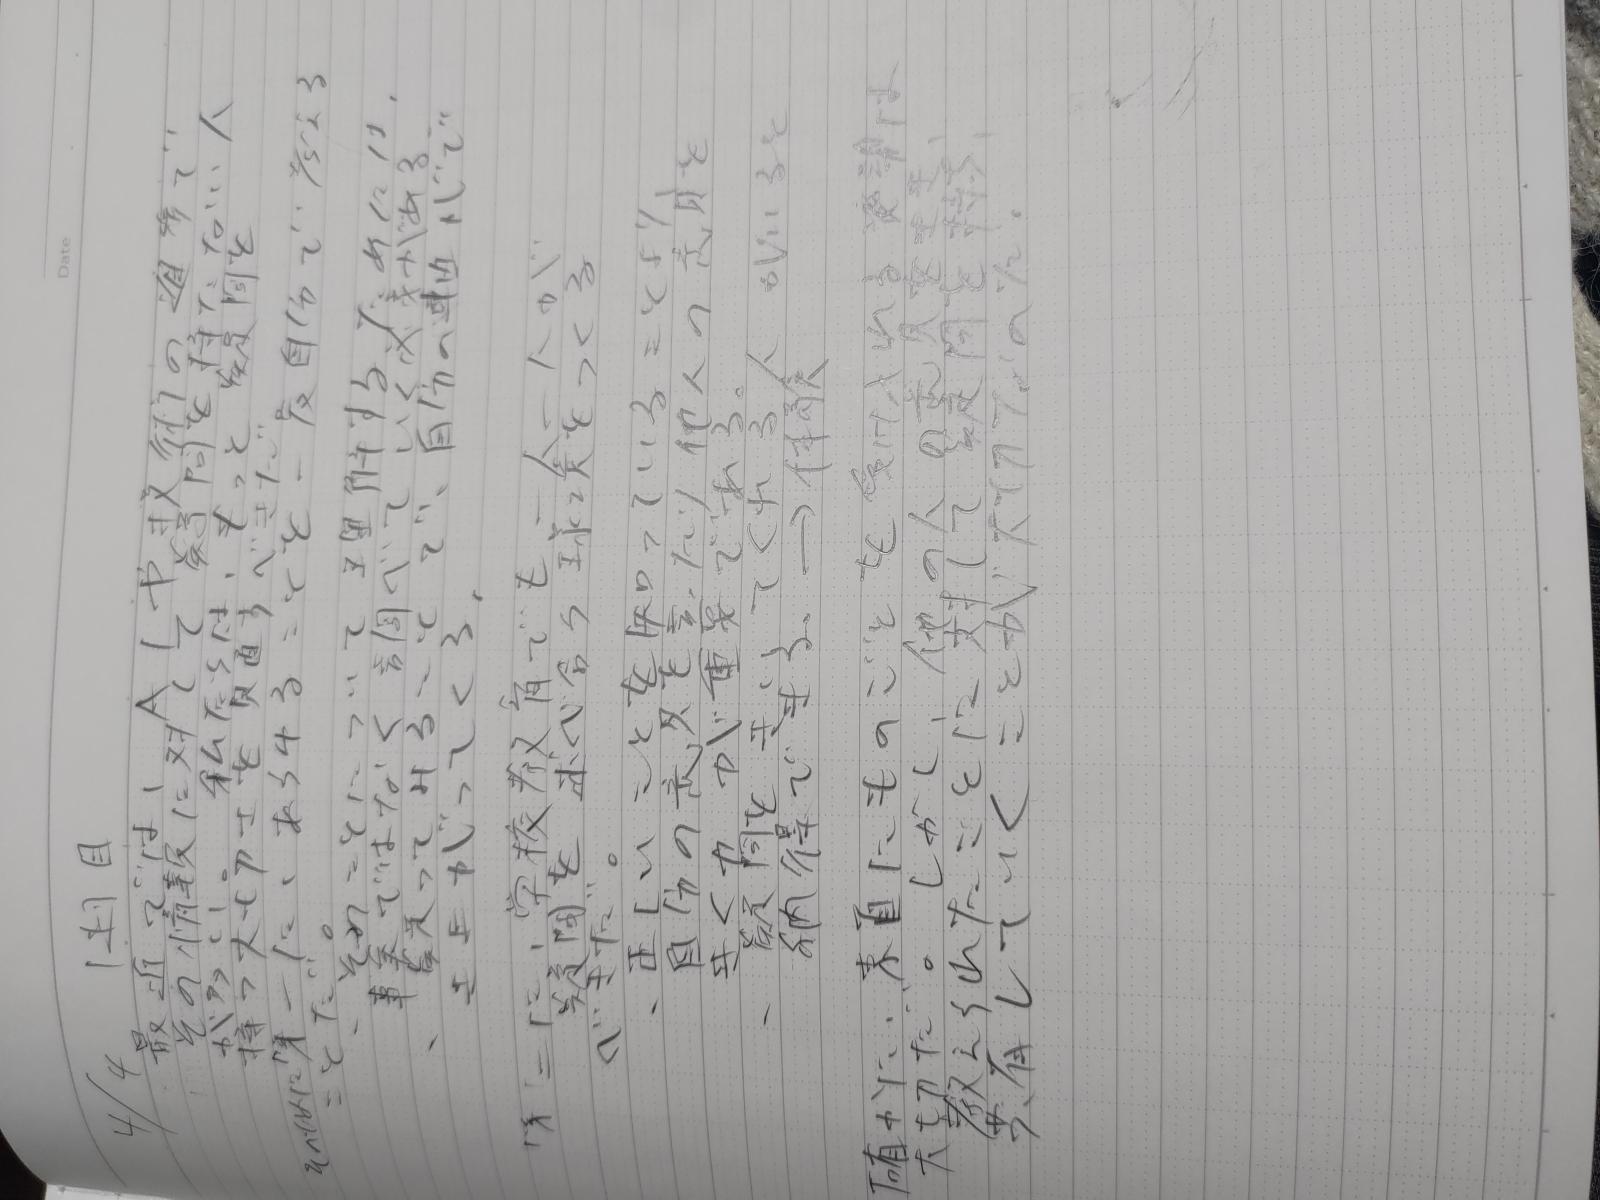 Date
4/4 1枚目
最近では、AIや技術の進歩で、
その情報に対して疑問を持たない人
が多い。私たちは、もっと疑問を
持つ大切さを見直すべきだ。
それには第一に、あらゆることを一度自分で考える
ことだ。
、そのことについて理解するためには、
事実ではなく調べていく必要がある
、疑ってみることで、自分の理由がで
き上がってくる。
第二に、学校教育でも一人一人が
疑問を述べ合う環境をつくる
べきだ。
、正しいことを知っていることより
自分の意見を言ったり他人の意見を
聞くカが重要である。
、疑問をもってくれる人がいると
納得できる。→体験
確かに、素直にものごとを受け入れる姿勢は
大切だ。しかし、他の人の意見や
教えられたことに対して疑問を持ち、
していくことが大切なのだ。